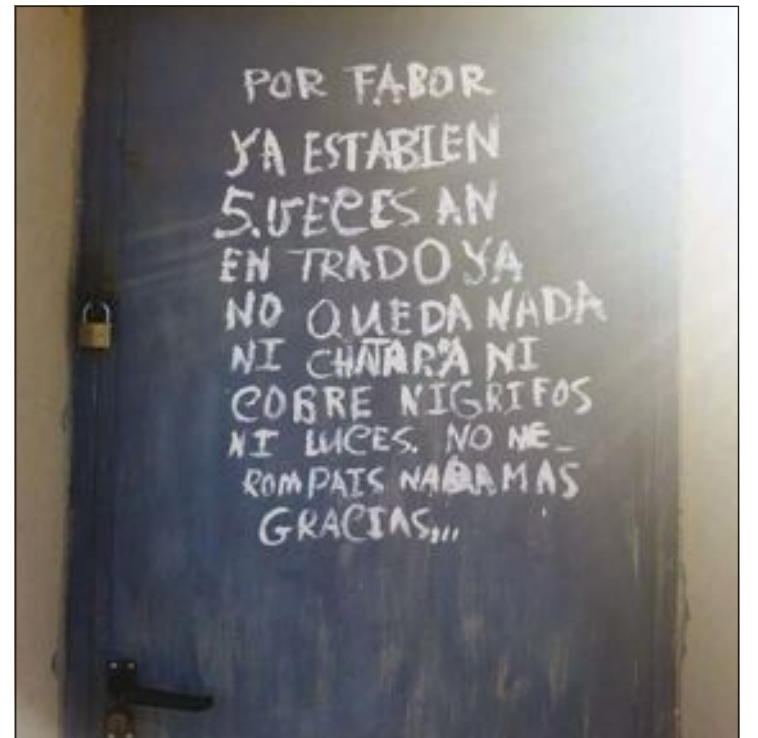 POR FABOR
YA ESTABIEN
5.VECES AN
EN TRADO YA
NO QUEDA NADA
NI CHATARA NI
COBRE NIGRIFOS
NI LUCES. NO ME_
ROMPAIS NADA MAS
GRACIAS,,,